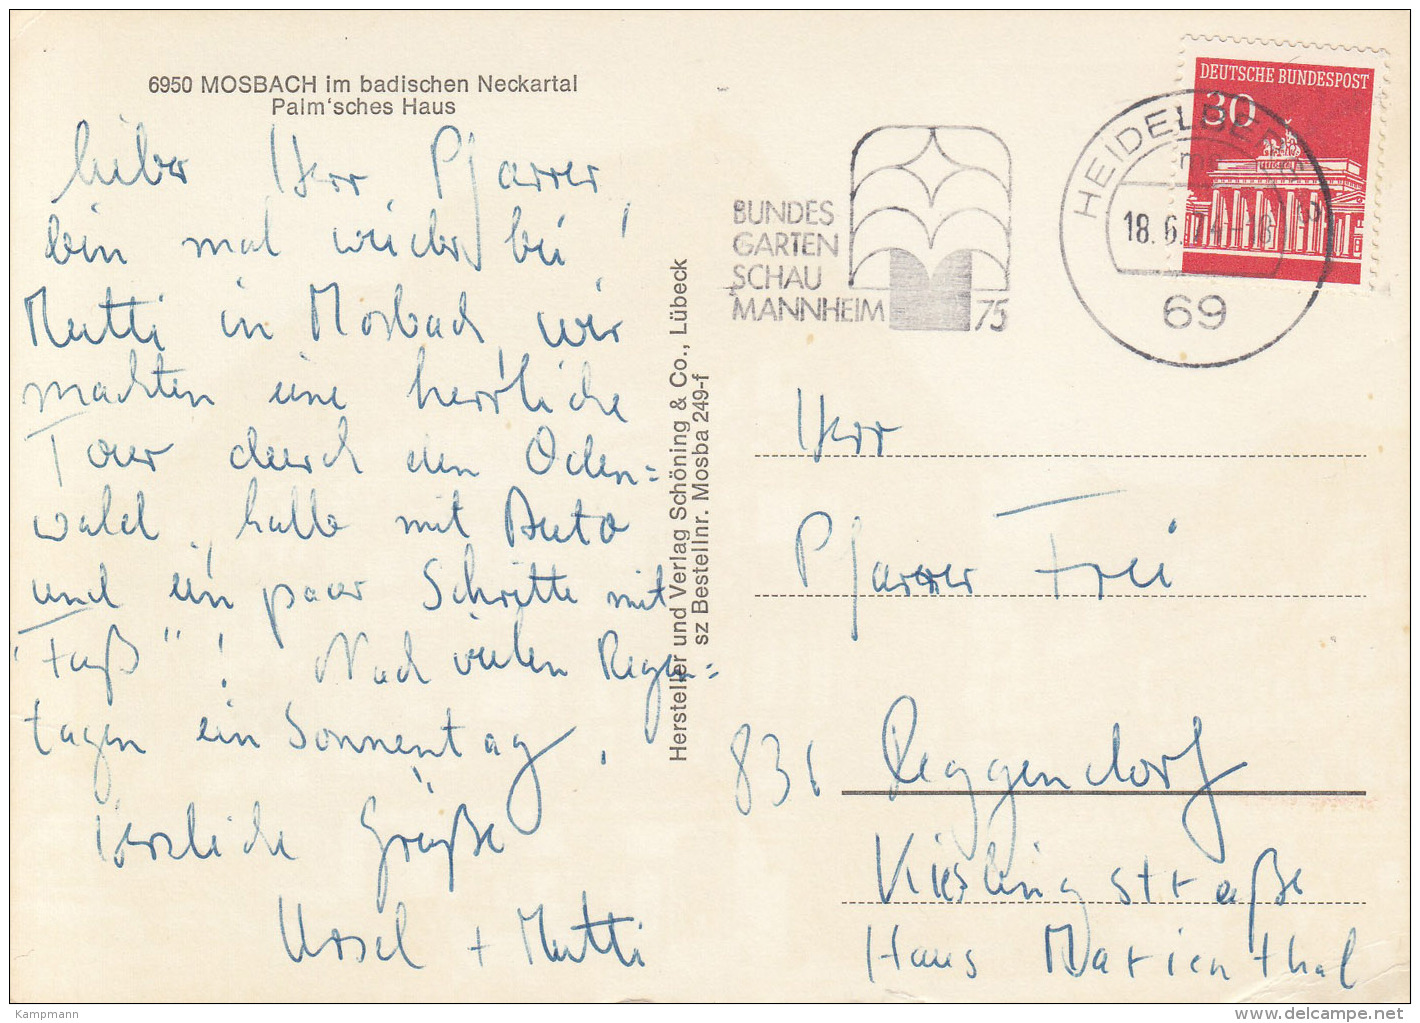 6950 MOSBACH im badischen Neckartal
Palm'sches Haus
Lieber Herr Pfarrer,
bin mal wieder bei
Mutti in Mosbach, wir
machten eine herrliche
Tour durch den Oden=
wald, halb mit Auto
und ein paar Schritte mit
"Fuß"! Nach vielen Regen=
tagen ein Sonnentag,
Herzliche Grüße
Ursel + Mutti
Hersteller und Verlag Schöning & Co., Lübeck
sz Bestellnr. Mosba 249-f
BUNDES
GARTEN
SCHAU
MANNHEIM 75
HEIDELBERG
18.6.74-18
69
DEUTSCHE BUNDESPOST
30
Herr
Pfarrer Frei
836 Deggendorf
Kieslingstraße
Haus Marienthal
Kampmann
www.delcampe.net